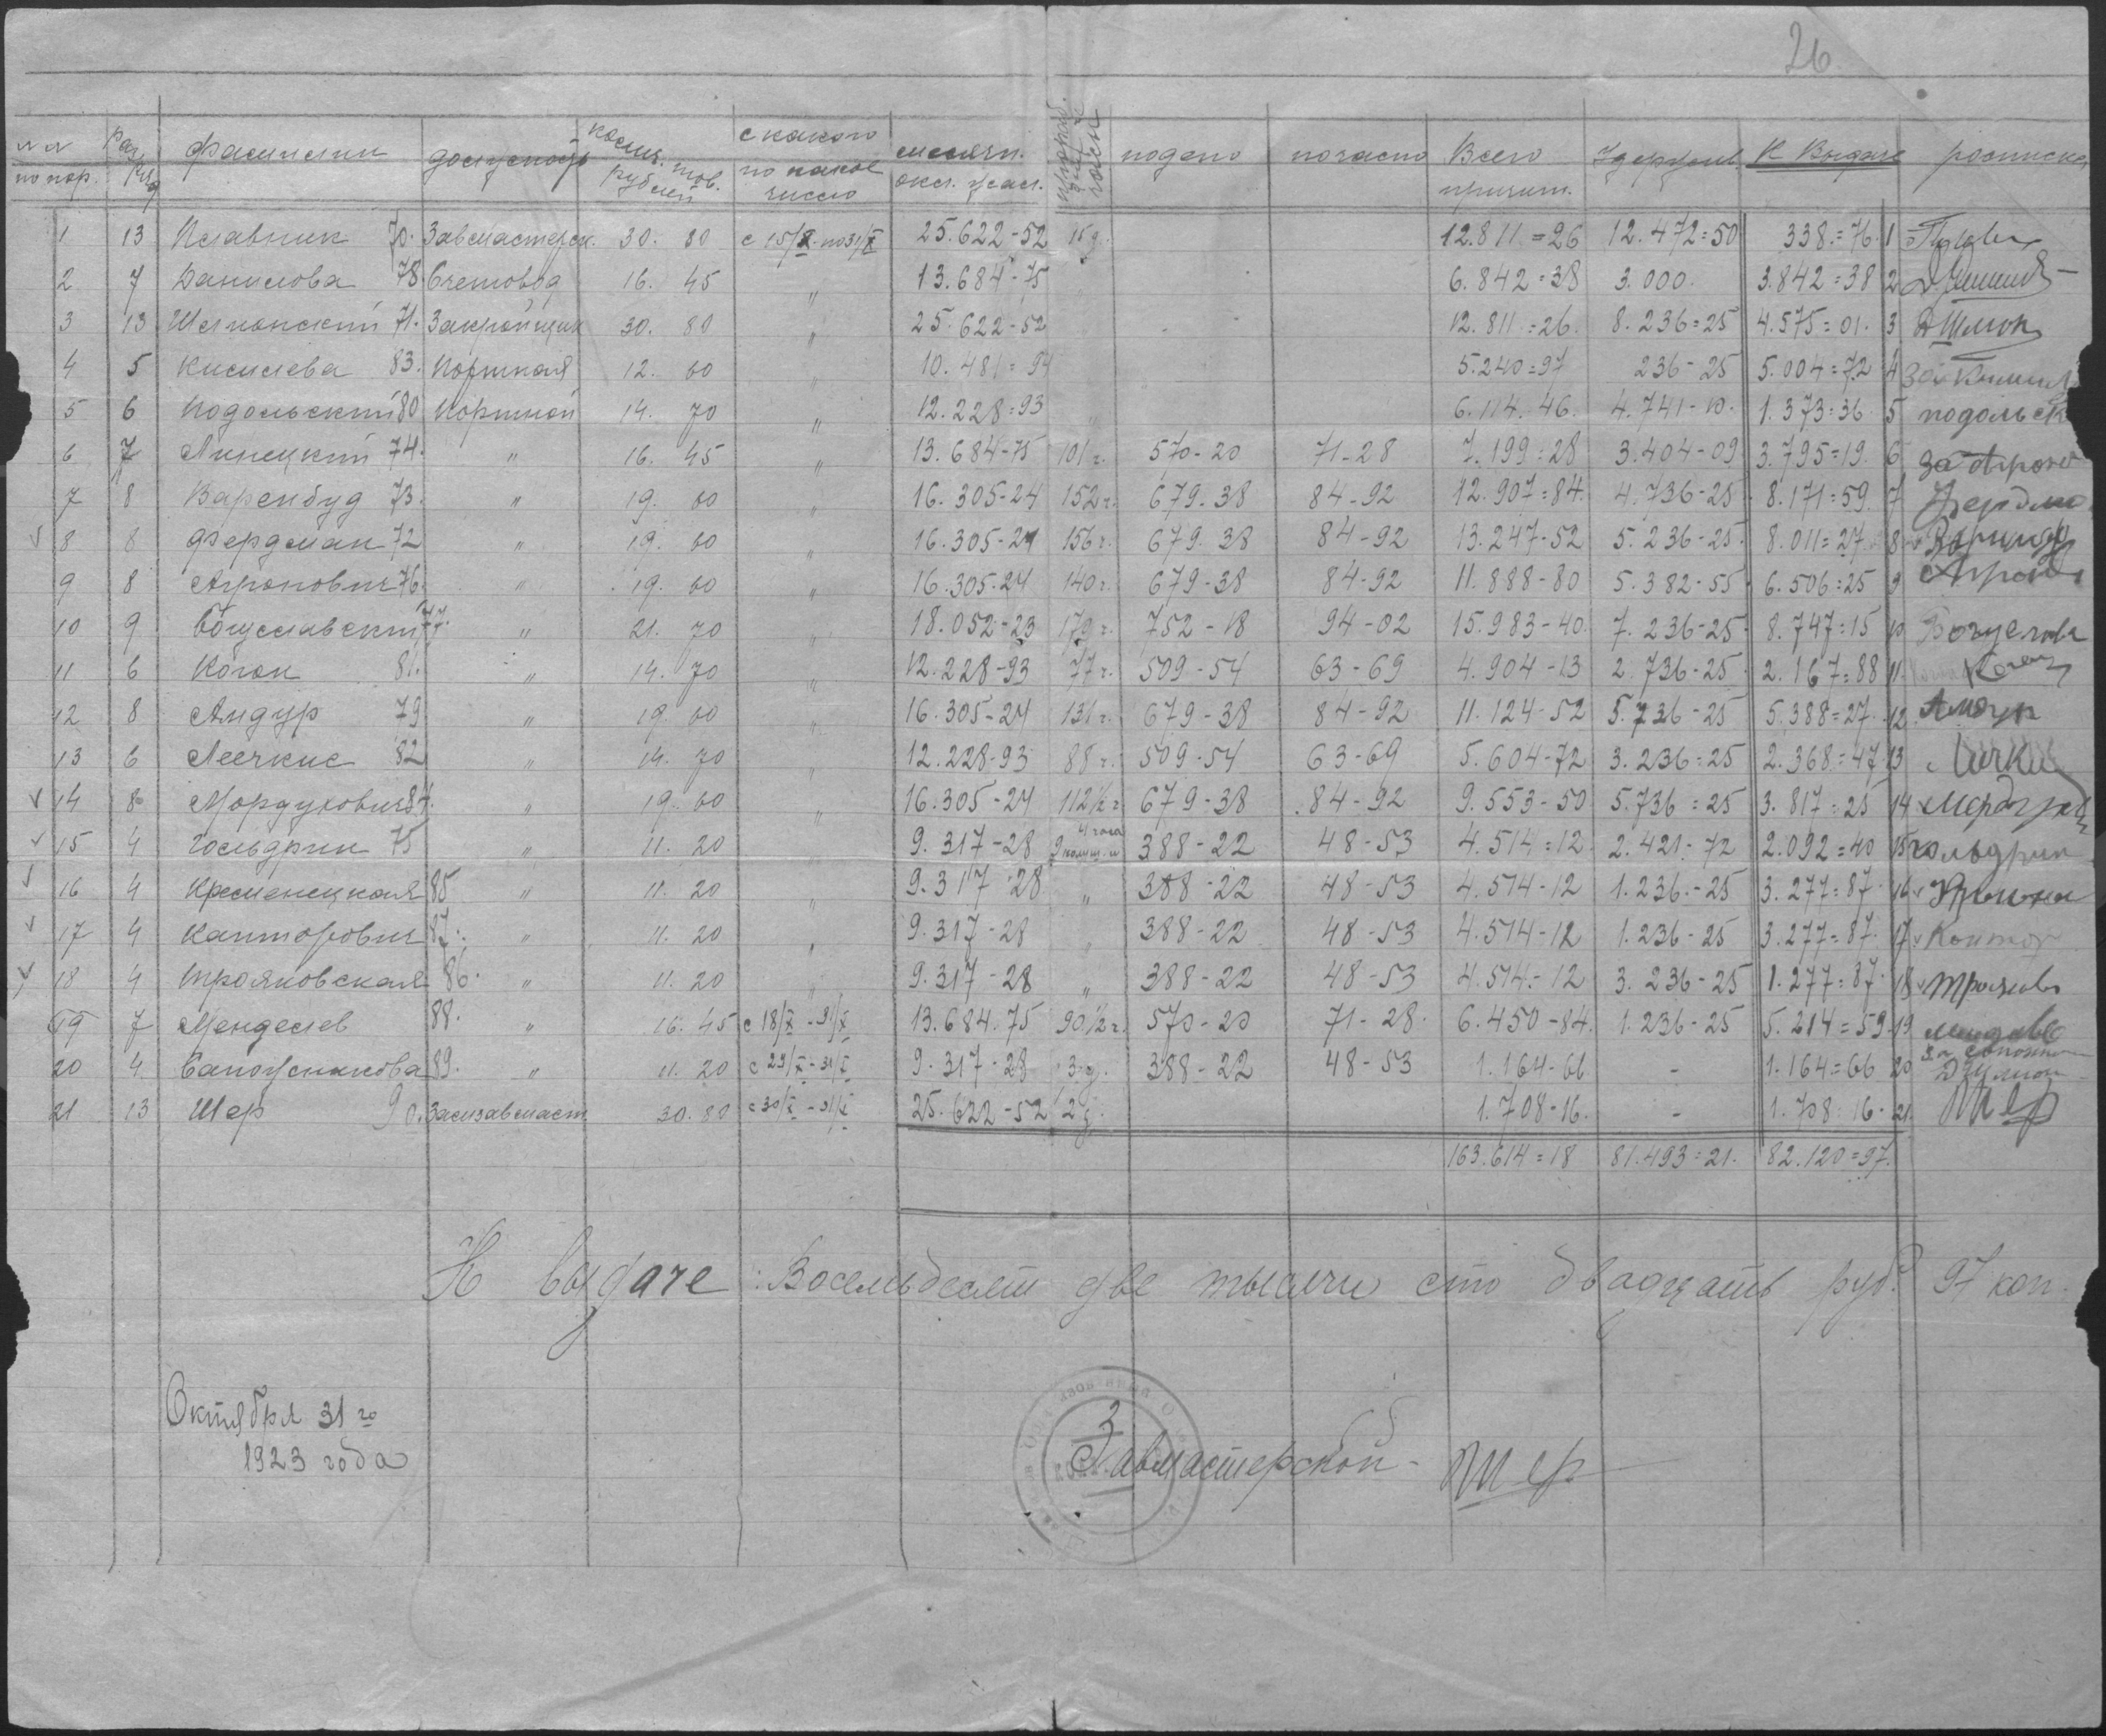 26
№ № по пор. Разряд фамилии должность колич. тов. рублей с какого по какое число месячн. окл. жал. часы подено почасно Всего причит. Удержив. К Выдаче росписка
1 13 Плавник 70. Завмастерск. 30. 80 с 15/X по 31/X 25.622-52 15 д. 12.811=26 12.472=50 338=76 1
2 7 Данилова 78 Счетовод 16. 45 " 13.684-75 6.842=38 3.000. 3.842=38 2
3 13 Шклионский 71. Закройщик 30. 80 " 25.622-52 12.811=26. 8.236=25 4.575=01. 3
4 5 Кисилева 83. Портная 12. 60 " 10.481=94 5.240=97 236-25 5.004=72 4 за
5 6 Подольский 80 Портной 14. 70 " 12.228=93 6.114.46. 4.741-10. 1.373=36. 5 подольск
6 7 Линецкий 74. " 16. 45 " 13.684-75 101 ч. 570-20 71-28 7.199=28 3.404-09 3.795=19. 6 за
7 8 Варенбуд 73. " 19. 60 " 16.305-24 152 ч. 679.38 84-92 12.907=84. 4.736-25. 8.171=59. 7 Фердма
8 8 Фердман 72 " 19. 60 " 16.305-24 156 ч. 679.38 84-92 13.247-52 5.236-25. 8.011=27 8
9 8 Агронович 76. " 19. 60 " 16.305.24 140 ч. 679-38 84-92 11.888-80 5.382-55. 6.506=25 9
10 9 Богуславский 77. " 21. 70 " 18.052-23 179 ч. 752-18 94-02 15.983-40. 7.236-25. 8.747=15 10 Богуслав
11 6 Коган 81. " 14. 70 " 12.228-93 77 ч. 509-54 63-69 4.904-13 2.736-25. 2.167=88 11. Коган
12 8 Амдур 79 " 19. 60 " 16.305-24 131 ч. 679-38 84-92 11.124-52 5.736-25 5.388=27. 12. Амдур
13 6 Леечкис 82 " 14. 70 " 12.228-93 88 ч. 509-54 63-69 5.604-72 3.236=25 2.368=47 13
14 8 Мордухович 84. " 19. 60 " 16.305-24 112½ ч 679-38 84-92 9.553-50 5.736=25 3.817=25 14
15 4 Гольдрин 75 " 11. 20 9.317-28 4 часа 388-22 48-53 4.514=12. 2.421-72 2.092=40 15 гольдрин
16 4 Кременецкая 85 " 11. 20 " 9.317-28 " 388-22 48-53 4.514-12 1.236-25 3.277=87. 16
17 4 Канторович 87. " 11. 20 " 9.317-28 " 388-22 48-53 4.514-12 1.236-25 3.277=87. 17 Кантор
18 4 Трояновская 86. " 11. 20 " 9.317-28 " 388-22 48-53 4.514-12 3.236-25 1.277=87. 18
19 7 Менделев 88. " 16. 45 с 18/X - 31/X 13.684.75 90½ ч. 570-20 71-28. 6.450-84. 1.236-25 5.214=59 19
20 4. Сапожникова 89. " 11. 20 с 29/X - 31/X 9.317-28 3 д. 388-22 48-53 1.164-66 - 1.164=66 20 за
21 13 Шер 90. Замзавмаст. 30. 80 с 30/X - 31/X 25.622-52 2 д. 1.708-16. - 1.708=16. 21. Шер
163.614=18 81.493=21. 82.120=97.
К выдаче: Восемьдесят две тысячи сто двадцать руб. 97 коп.
Октября 31го
1923 года
Завмастерской - Шер